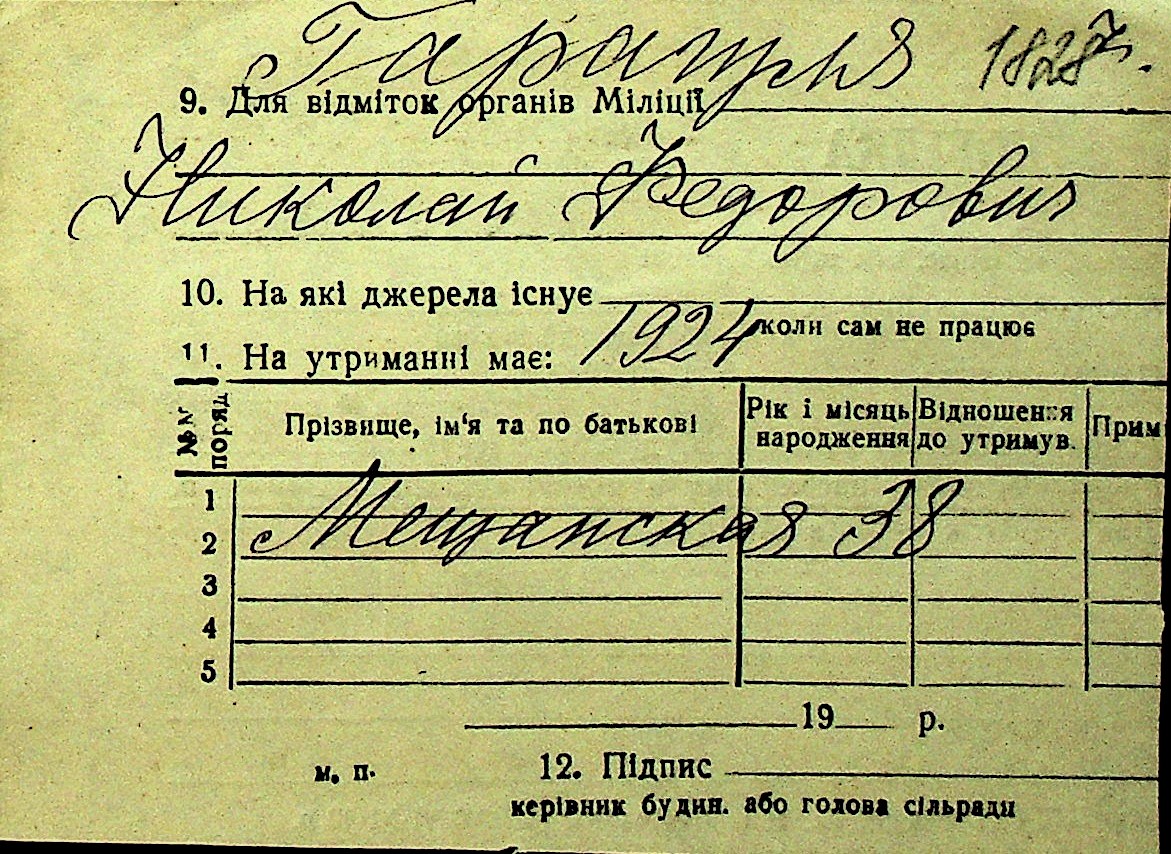 1828
9. Для відміток органів Міліції
Николай Федорович
10. На які джерела існує
коли сам не працює
11. На утриманні має: 1924
№№ поряд
Прізвище, ім'я та по батькові
Рік і місяць народження
Відношення до утримув.
Прим
1
2 Мещанская 38
3
4
5
19 р.
м. п. 12. Підпис
керівник будин. або голова сільради